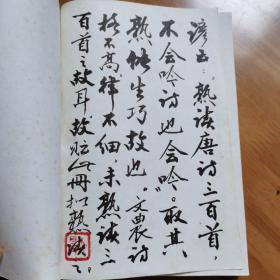 谚云：熟读唐诗三百首，
不会吟诗也会吟。取其
熟能生巧故也。文农诗
格不高，律不细，未熟读三
百首之故耳。故贻此册